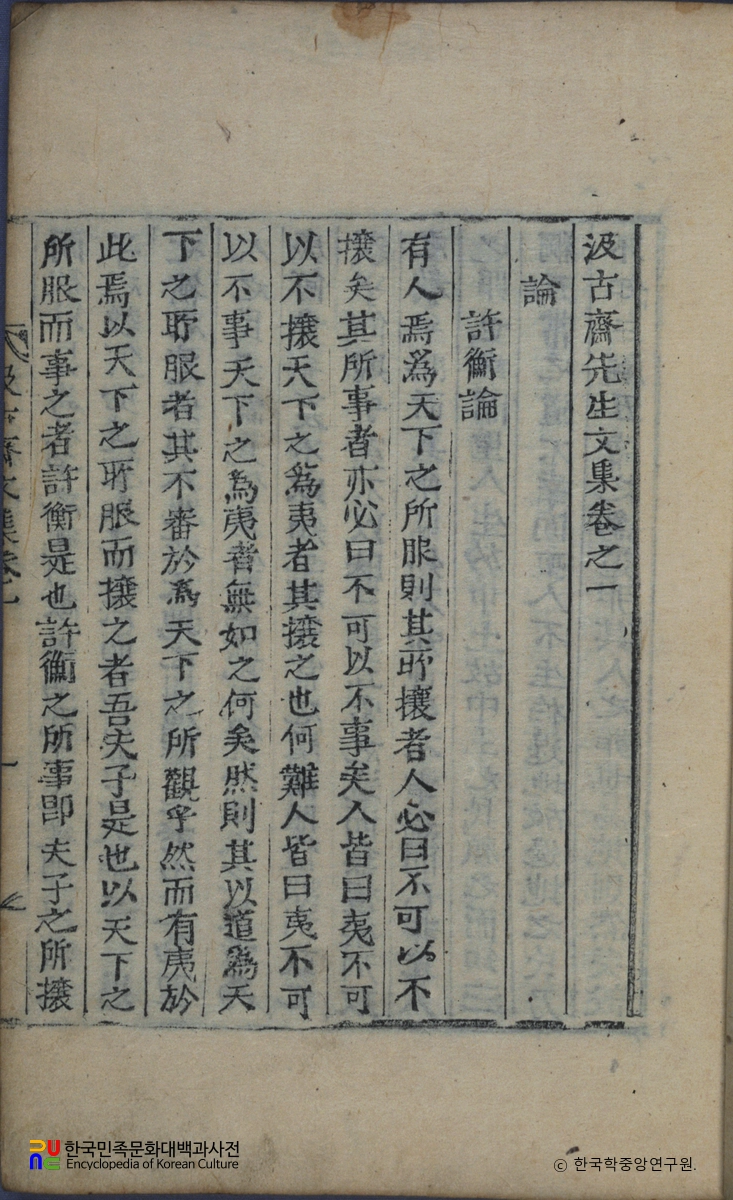 汲古齋先生文集卷之一
論
許衡論
有人焉爲天下之所服則其所攘者人必曰不可以不
攘矣其所事者亦必曰不可以不事矣人皆曰夷不可
以不攘天下之爲夷者其攘之也何難人皆曰夷不可
以不事天下之爲夷者無如之何矣然則其以道爲天
下之所服者其不審於爲天下之所觀乎然而有夷於
此焉以天下之所服而攘之者吾夫子是也以天下之
所服而事之者許衡是也許衡之所事卽夫子之所攘
汲古齋文集卷之一
一
한국민족문화대백과사전
Encyclopedia of Korean Culture
© 한국학중앙연구원.